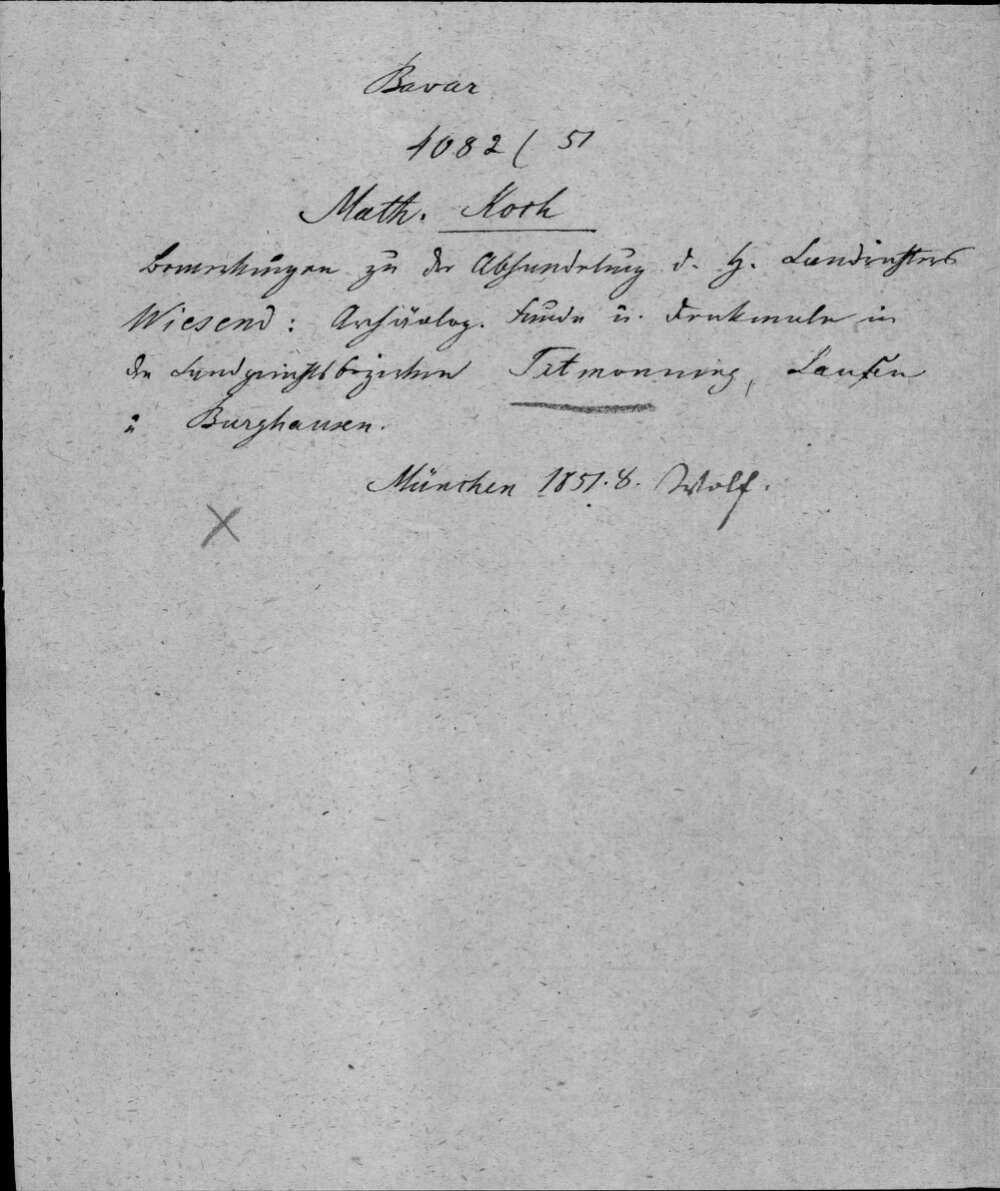 Bavar
4082 ( 51
Math. Koch
Bemerkungen zu der Abhandelung d. H. Landrichters
Wiesend: Archäolog. Funde u. Denkmale in
den Landgerichtsbezirken Titmonning, Laufen
u Burghausen.
München 1851. 8. Wolf.